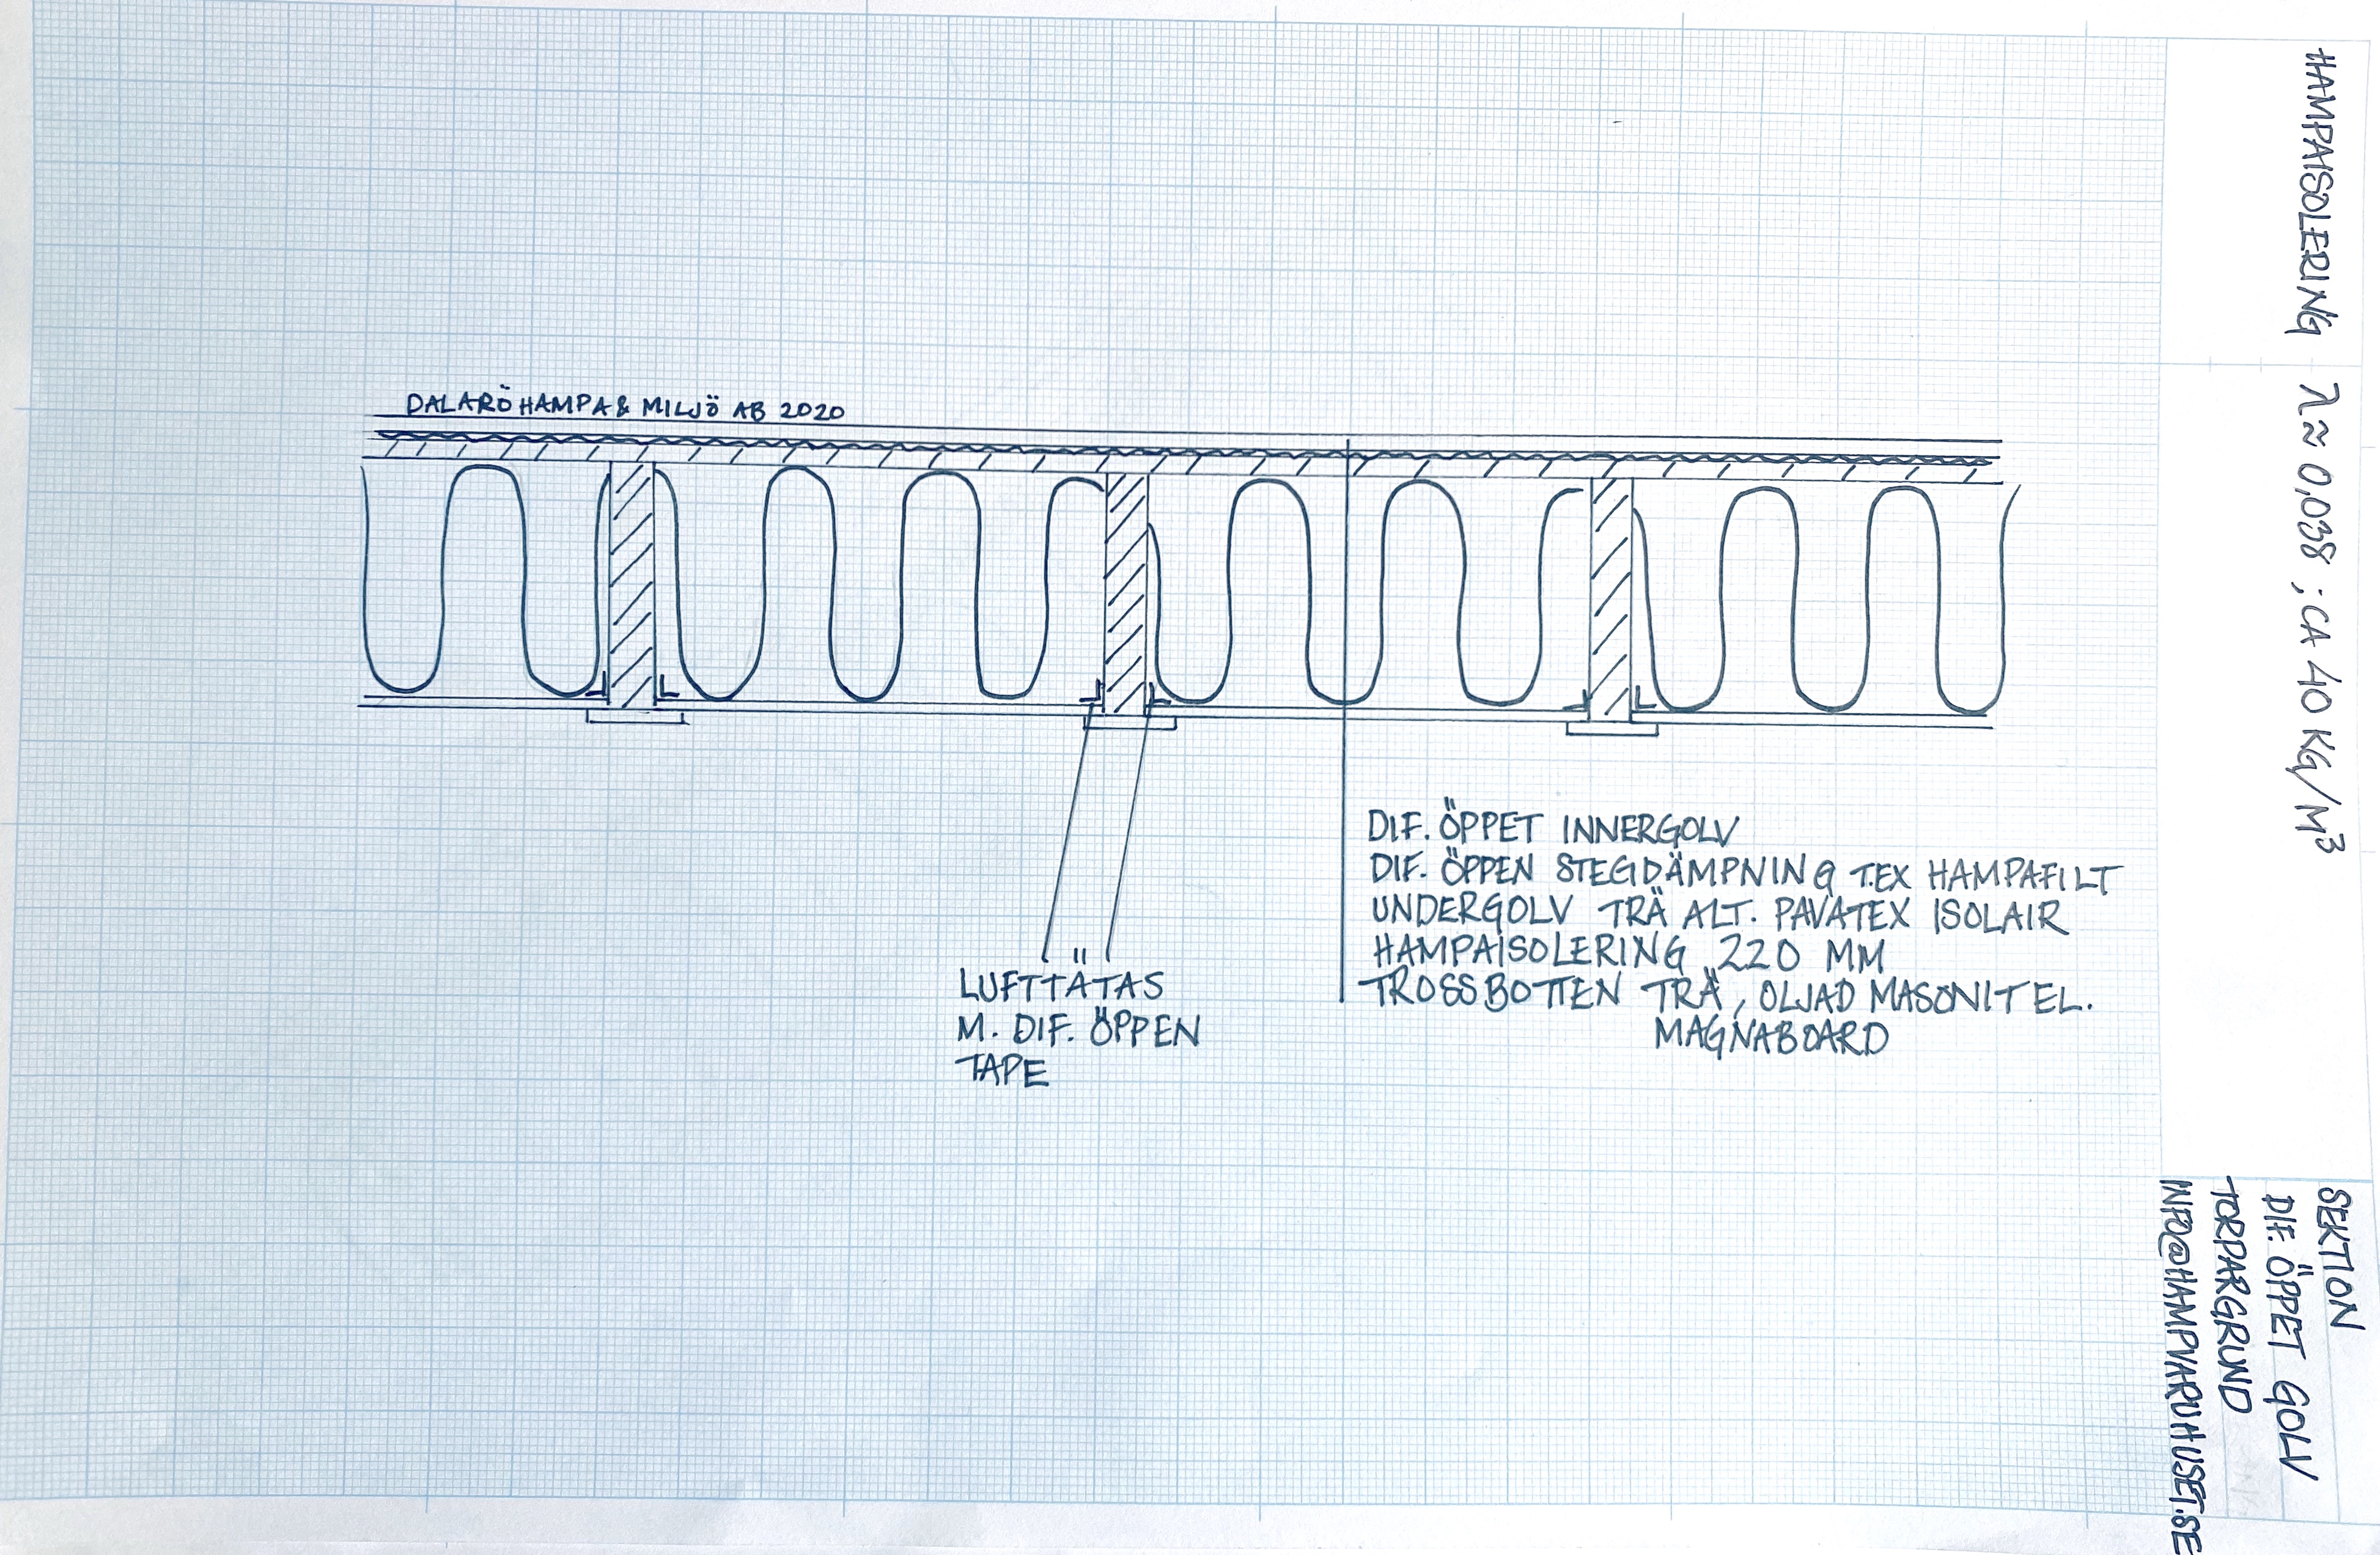 DALARÖ HAMPA & MILJÖ AB 2020
DIF. ÖPPET INNERGOLV
DIF. ÖPPEN STEGDÄMPNING T.EX HAMPAFILT
UNDERGOLV TRÄ ALT. PAVATEX ISOLAIR
HAMPAISOLERING 220 MM
TROSSBOTTEN TRÄ, OLJAD MASONIT EL.
MAGNABOARD
LUFTTÄTAS
M. DIF. ÖPPEN
TAPE
HAMPAISOLERING λ ≈ 0,038 ; CA 40 KG/M³
SEKTION
DIF. ÖPPET GOLV
TORPARGRUND
INFO@HAMPVARUHUSET.SE